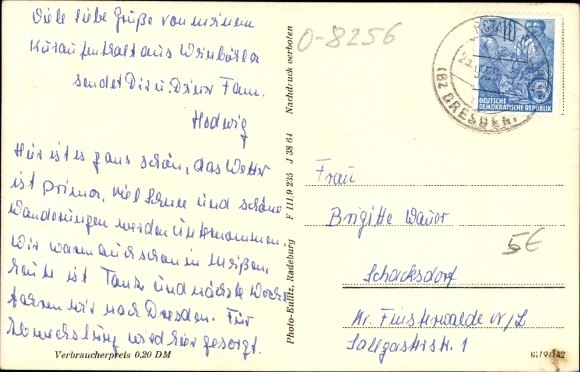 Viele liebe Grüße von meinem
Kuraufenthalt aus Weinböhla
sendet Dir u. Deiner Fam.
Hedwig
Hier ist es ganz schön, das Wetter
ist prima, viel Sonne und schöne
Wanderungen werden unternommen.
Wir waren auch schon in Meißen,
heute ist Tanz und nächste Woche
fahren wir nach Dresden. Für
Abwechslung wird hier gesorgt.
Verbraucherpreis 0,20 DM
Photo-Eulitz, Radeburg F III.9 235 J 38 64 Nachdruck verboten
0-8256
10
DEUTSCHE
DEMOKRATISCHE REPUBLIK
(BZ DRESDEN)
Frau
Brigitte Wauer
5€
Schacksdorf
Kr. Finsterwalde N/L
Sallgastrstr. 1